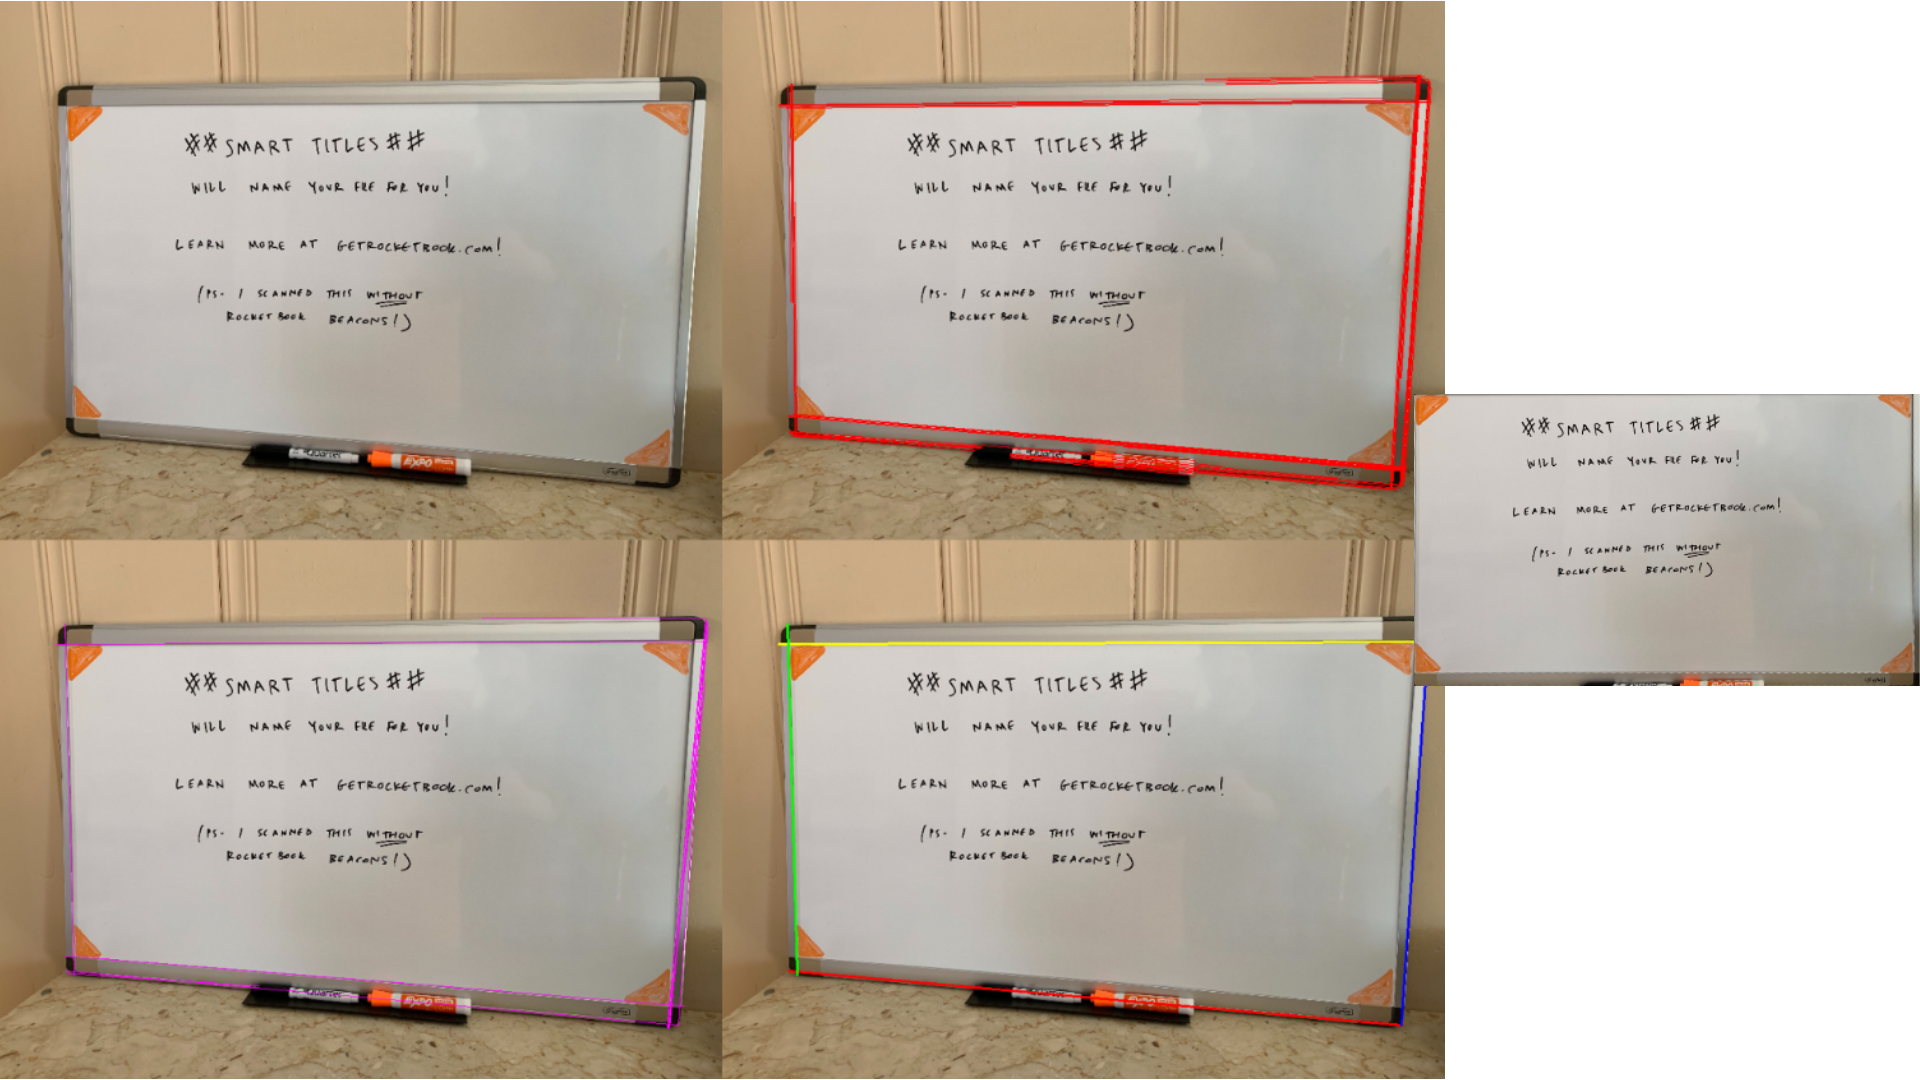 ##SMART TITLES##
WILL NAME YOUR FILE FOR YOU!
LEARN MORE AT GETROCKETBOOK.COM!
(PS- I SCANNED THIS WITHOUT
ROCKETBOOK BEACONS!)
Quartet EXPO
##SMART TITLES##
WILL NAME YOUR FILE FOR YOU!
LEARN MORE AT GETROCKETBOOK.COM!
(PS- I SCANNED THIS WITHOUT
ROCKETBOOK BEACONS!)
##SMART TITLES##
WILL NAME YOUR FILE FOR YOU!
LEARN MORE AT GETROCKETBOOK.COM!
(PS- I SCANNED THIS WITHOUT
ROCKETBOOK BEACONS!)
##SMART TITLES##
WILL NAME YOUR FILE FOR YOU!
LEARN MORE AT GETROCKETBOOK.COM!
(PS- I SCANNED THIS WITHOUT
ROCKETBOOK BEACONS!)
Quartet EXPO
##SMART TITLES##
WILL NAME YOUR FILE FOR YOU!
LEARN MORE AT GETROCKETBOOK.COM!
(PS- I SCANNED THIS WITHOUT
ROCKETBOOK BEACONS!)
EXPO